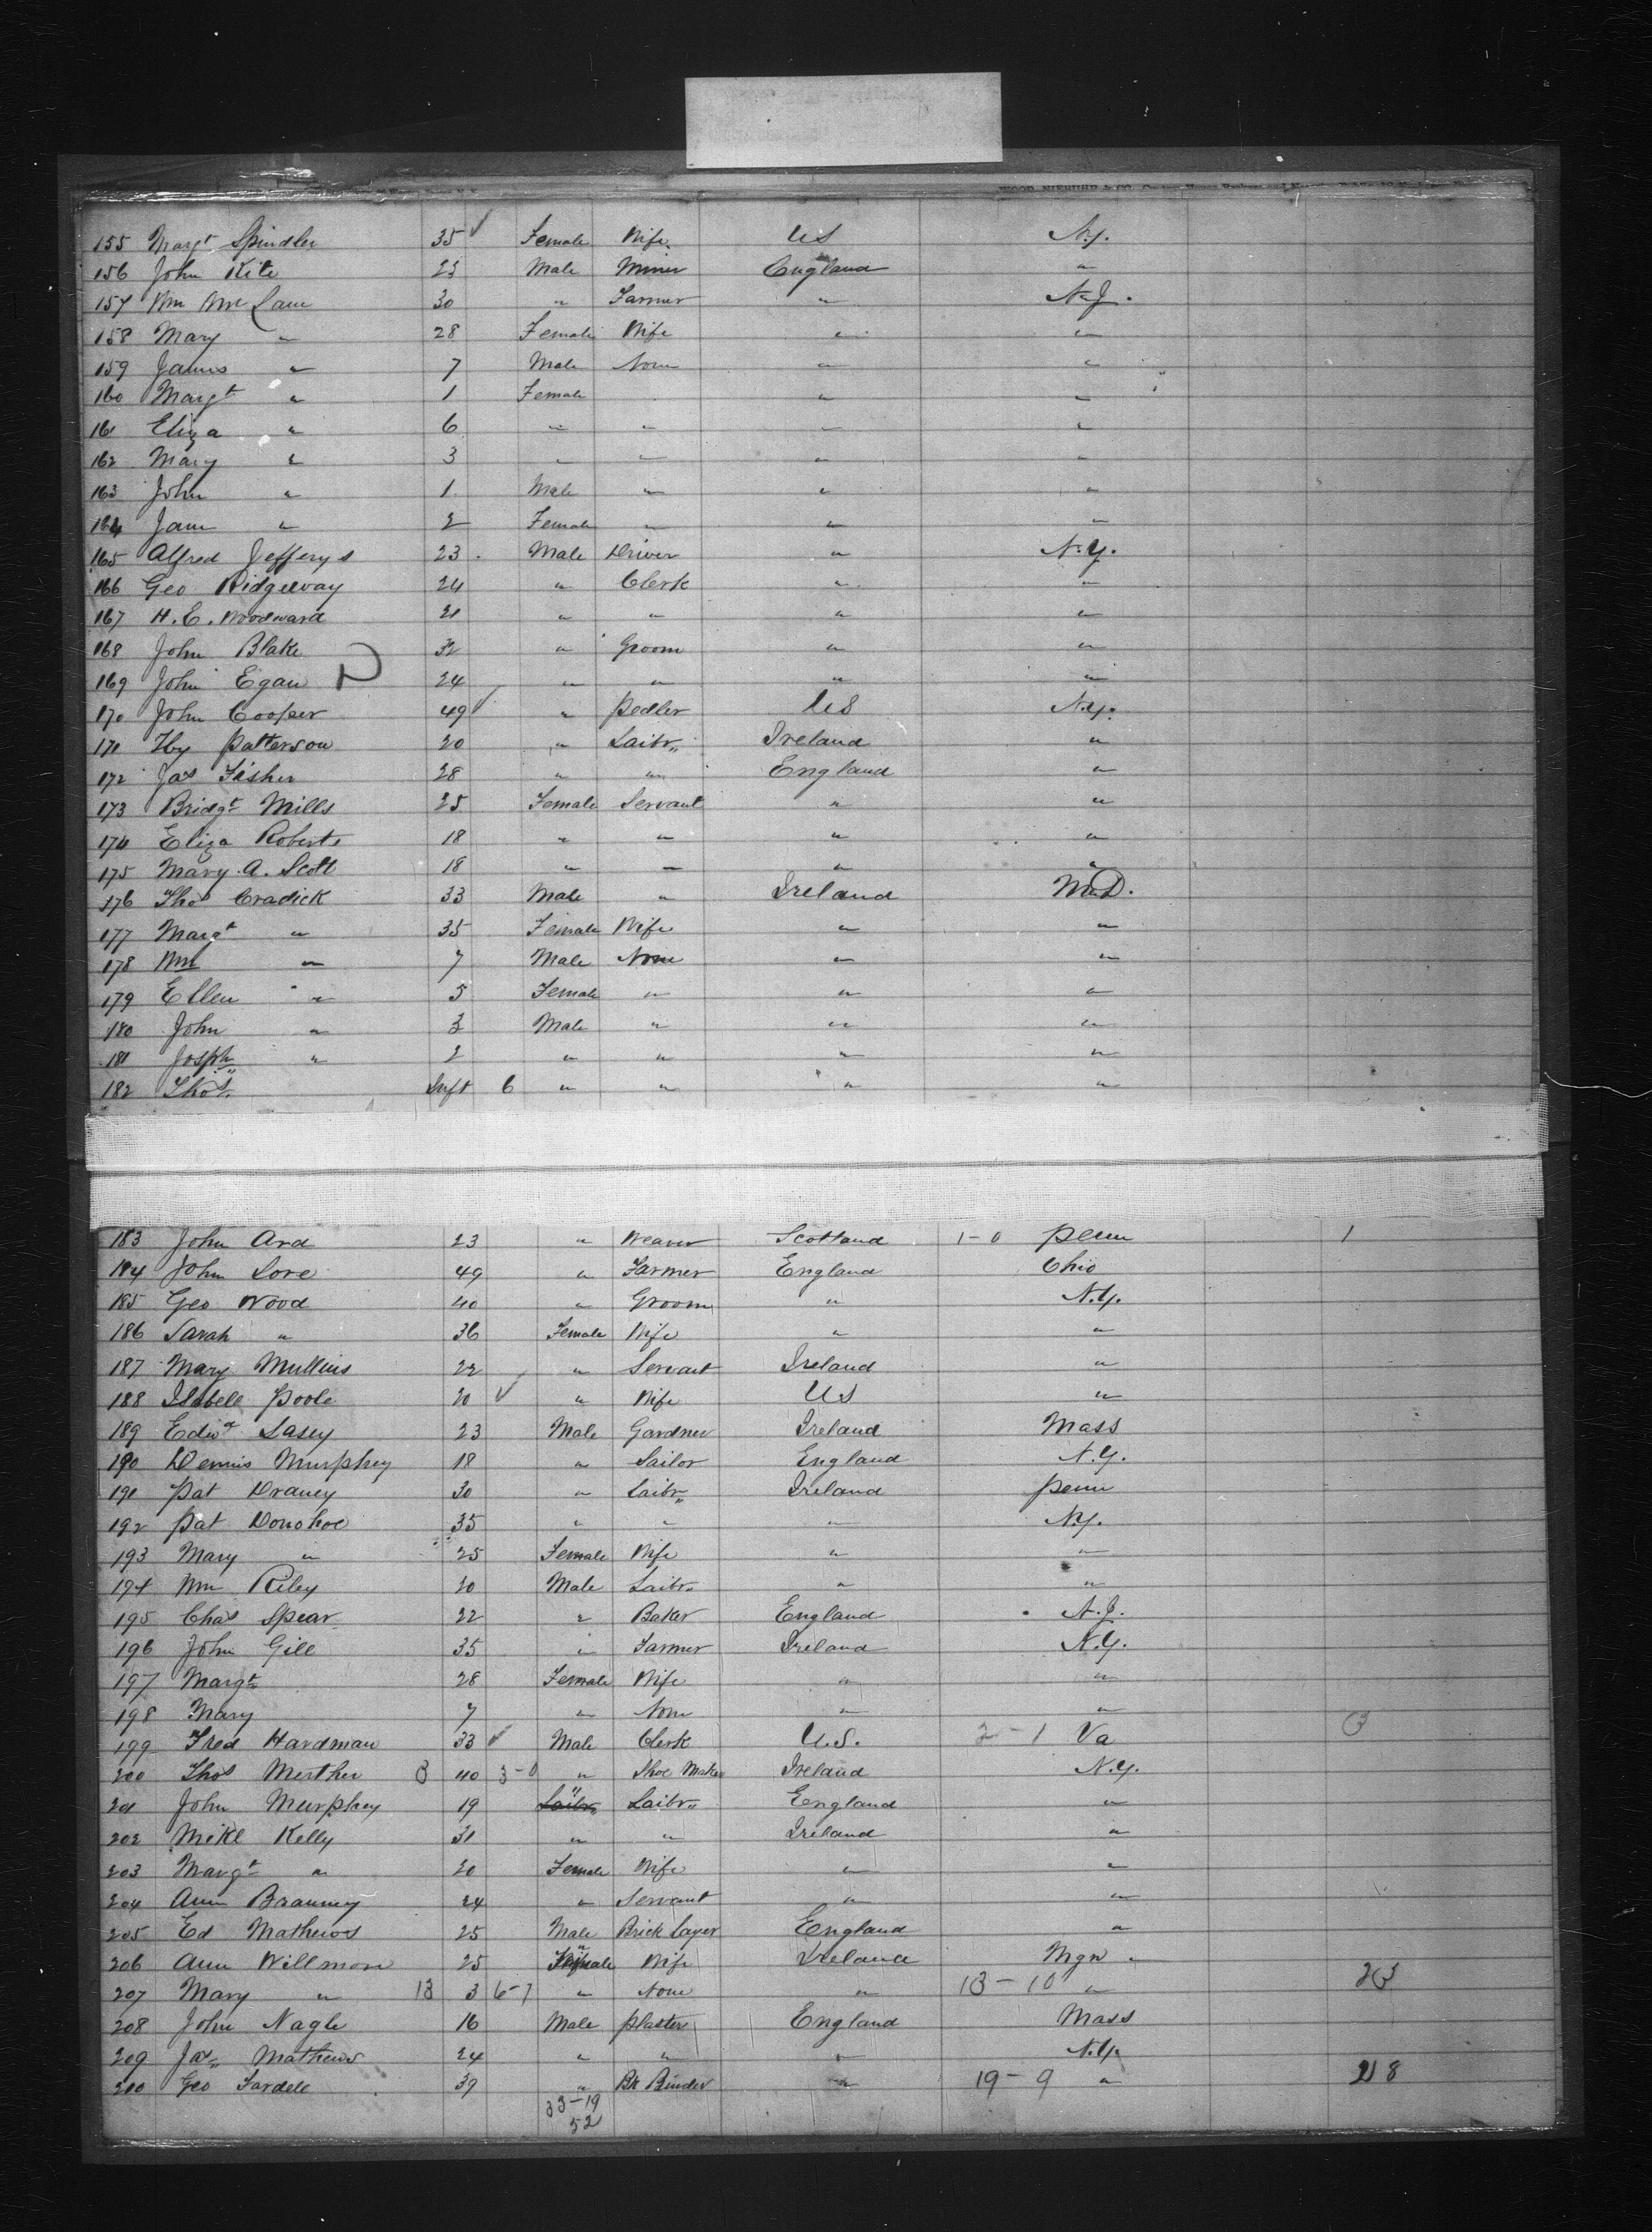 155 Margt Spindler 35 ✓ Female Wife US N.y.
156 John Kite 23 Male Miner England "
157 Wm Mc Lane 30 " Farmer " N.J.
158 Mary " 28 Female Wife " "
159 James " 7 Male None " "
160 Margt " 1 Female " "
161 Eliza " 6 " " " "
162 Mary " 3 " " " "
163 John " 1 Male " " "
164 Jane " 2 Female " " "
165 Alfred Jefferys 23 Male Driver " N.Y.
166 Geo Ridgeway 24 " Clerk " "
167 H. E. Woodward 21 " " " "
168 John Blake 32 " Groom " "
169 John Egan D 24 " " " "
170 John Cooper 49 ✓ " Pedler US N.Y.
171 Hy Patterson 20 " Laibr" Ireland "
172 Jas Fisher 28 " " England "
173 Bridgt Mills 25 Female Servant " "
174 Eliza Roberts 18 " " " "
175 Mary A. Scott 18 " " " "
176 Thos Cradick 33 Male " Ireland M.D.
177 Margt " 35 Female Wife " "
178 Wm " 7 Male None " "
179 Ellen " 5 Female " " "
180 John " 3 Male " " "
181 Josph " 2 " " " "
182 Thos " Inft 6 " " " "
183 John Ard 23 " Weaver Scotland 1-0 Penn 1
184 John Lore 49 " Farmer England Ohio
185 Geo Wood 40 " Groom " N.Y.
186 Sarah " 36 Female Wife " "
187 Mary Mullins 22 " Servant Ireland "
188 Isabell Poole 20 ✓ " Wife US "
189 Edwd Lasey 23 Male Gardner Ireland Mass
190 Dennis Murphey 18 " Sailor England N.Y.
191 Pat Draney 30 " Laibr" Ireland Penn
192 Pat Donohoe 35 " " " N.Y.
193 Mary " 25 Female Wife " "
194 Wm Riley 20 Male Laibr" " "
195 Chas Spear 22 " Baker England N.J.
196 John Gill 35 " Farmer Ireland N.Y.
197 Margt 28 Female Wife " "
198 Mary 7 " None " "
199 Fred Hardman 33 ✓ Male Clerk U.S. 2-1 Va 3
200 Thos Merther 3 40 3-0 " Shoe Maker Ireland N.Y.
201 John Murphey 19 " Laibr" England "
202 Mikl Kelly 31 " " Ireland "
203 Margt " 20 Female Wife " "
204 Ann Branney 24 " Servant " "
205 Ed Mathews 25 Male Brick Layer England "
206 Ann Willmore 25 Female Wife Ireland Mgn
207 Mary " 13 3 6-7 " None " 13-10 " 23
208 John Nagle 16 Male Plaster England Mass
209 Jas" Mathews 24 " " " N.Y.
210 Geo Fardell 39 " Bk Binder " 19-9 " 28
33-19
52